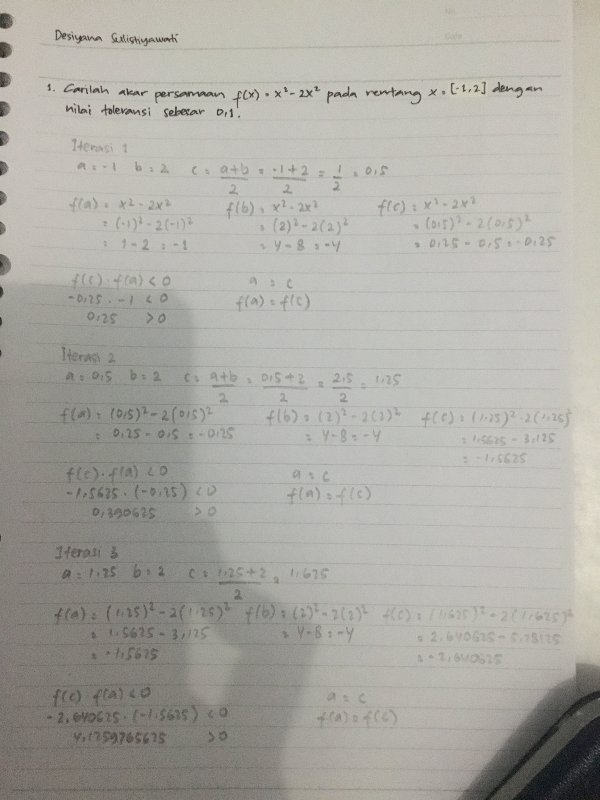 Desiyana Sulistiyawati
1. Carilah akar persamaan f(x) = x² - 2x² pada rentang x = [-1,2] dengan
nilai toleransi sebesar 0,1.
Iterasi 1
a = -1 b = 2 c = a+b/2 = -1+2/2 = 1/2 = 0,5
f(a) = x² - 2x² f(b) = x² - 2x² f(c) = x² - 2x²
= (-1)² - 2(-1)² = (2)² - 2(2)² = (0,5)² - 2(0,5)²
= 1 - 2 = -1 = 4 - 8 = -4 = 0,25 - 0,5 = -0,25
f(c) . f(a) < 0 a = c
-0,25 . -1 < 0 f(a) = f(c)
0,25 > 0
Iterasi 2
a = 0,5 b = 2 c = a+b/2 = 0,5+2/2 = 2,5/2 = 1,25
f(a) = (0,5)² - 2(0,5)² f(b) = (2)² - 2(2)² f(c) = (1,25)² - 2(1,25)²
= 0,25 - 0,5 = -0,25 = 4 - 8 = -4 = 1,5625 - 3,125
= -1,5625
f(c) . f(a) < 0 a = c
-1,5625 . (-0,25) < 0 f(a) = f(c)
0,390625 > 0
Iterasi 3
a = 1,25 b = 2 c = 1,25+2/2 = 1,625
f(a) = (1,25)² - 2(1,25)² f(b) = (2)² - 2(2)² f(c) = (1,625)² - 2(1,625)²
= 1,5625 - 3,125 = 4 - 8 = -4 = 2,640625 - 5,28125
= -1,5625 = -2,640625
f(c) . f(a) < 0 a = c
-2,640625 . (-1,5625) < 0 f(a) = f(c)
4,1259765625 > 0